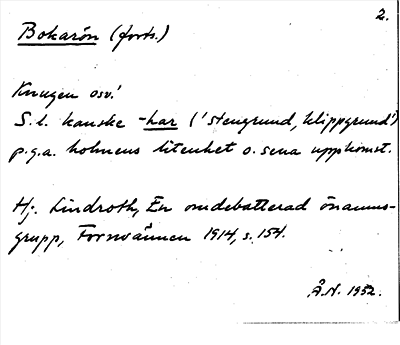 2.
Bokarön (forts.)
Knugen osv.'
S.l. kanske -har ('stengrund, klippgrund')
p.g.a. holmens litenhet o. sena uppkomst.
Hj. Lindroth, En omdebatterad önamns-
grupp, Fornvännen 1914, s. 154.
Å.N. 1952.